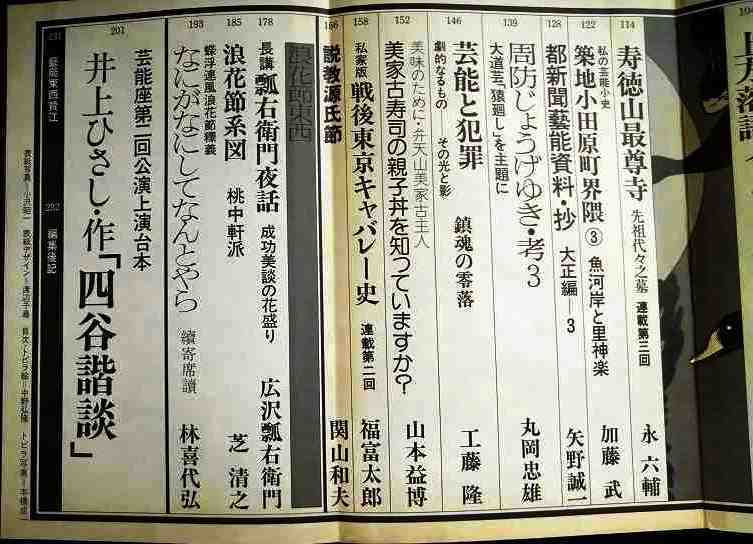 114
寿徳山最尊寺 先祖代々之墓 連載第三回 永 六輔
122
私の芸能小史
築地小田原町界隈③ 魚河岸と里神楽 加藤 武
128
都新聞藝能資料・抄 大正編―3 矢野誠一
139
周防じょうげゆき・考3
大道芸「猿廻し」を主題に 丸岡忠雄
146
劇的なるもの―その光と影
芸能と犯罪 鎮魂の零落 工藤 隆
152
美味のために・弁天山美家古主人
美家古寿司の親子丼を知っていますか? 山本益博
158
私家版 戦後東京キャバレー史 連載第二回 福富太郎
166
説教源氏節 関山和夫
浪花節東西
178
長講 瓢右衛門夜話 成功美談の花盛り 広沢瓢右衛門
185
浪花節系図 桃中軒派 芝 清之
193
蝶浮連風浪花節釋義
なにがなにしてなんとやら 續寄席讀 林喜代弘
201
芸能座第二回公演上演台本
井上ひさし・作「四谷諧談」
231
藝能東西賛江
232
編集後記
表紙写真―小沢昭一 表紙デザイン―渡辺千尋 目次/トビラ絵―中野弘隆 トビラ写真―本橋成一